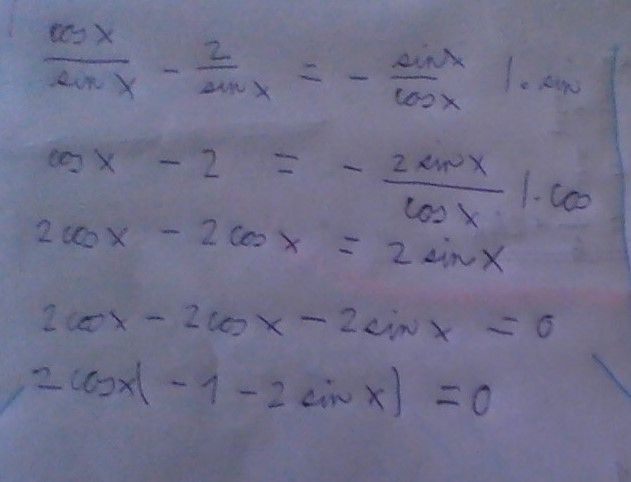 cosx/sinx - 2/sinx = - sinx/cosx /· sin
cosx - 2 = - 2sinx/cosx /· cos
2cosx - 2cosx = 2sinx
2cosx - 2cosx - 2sinx = 0
2cosx( - 1 - 2sinx) = 0